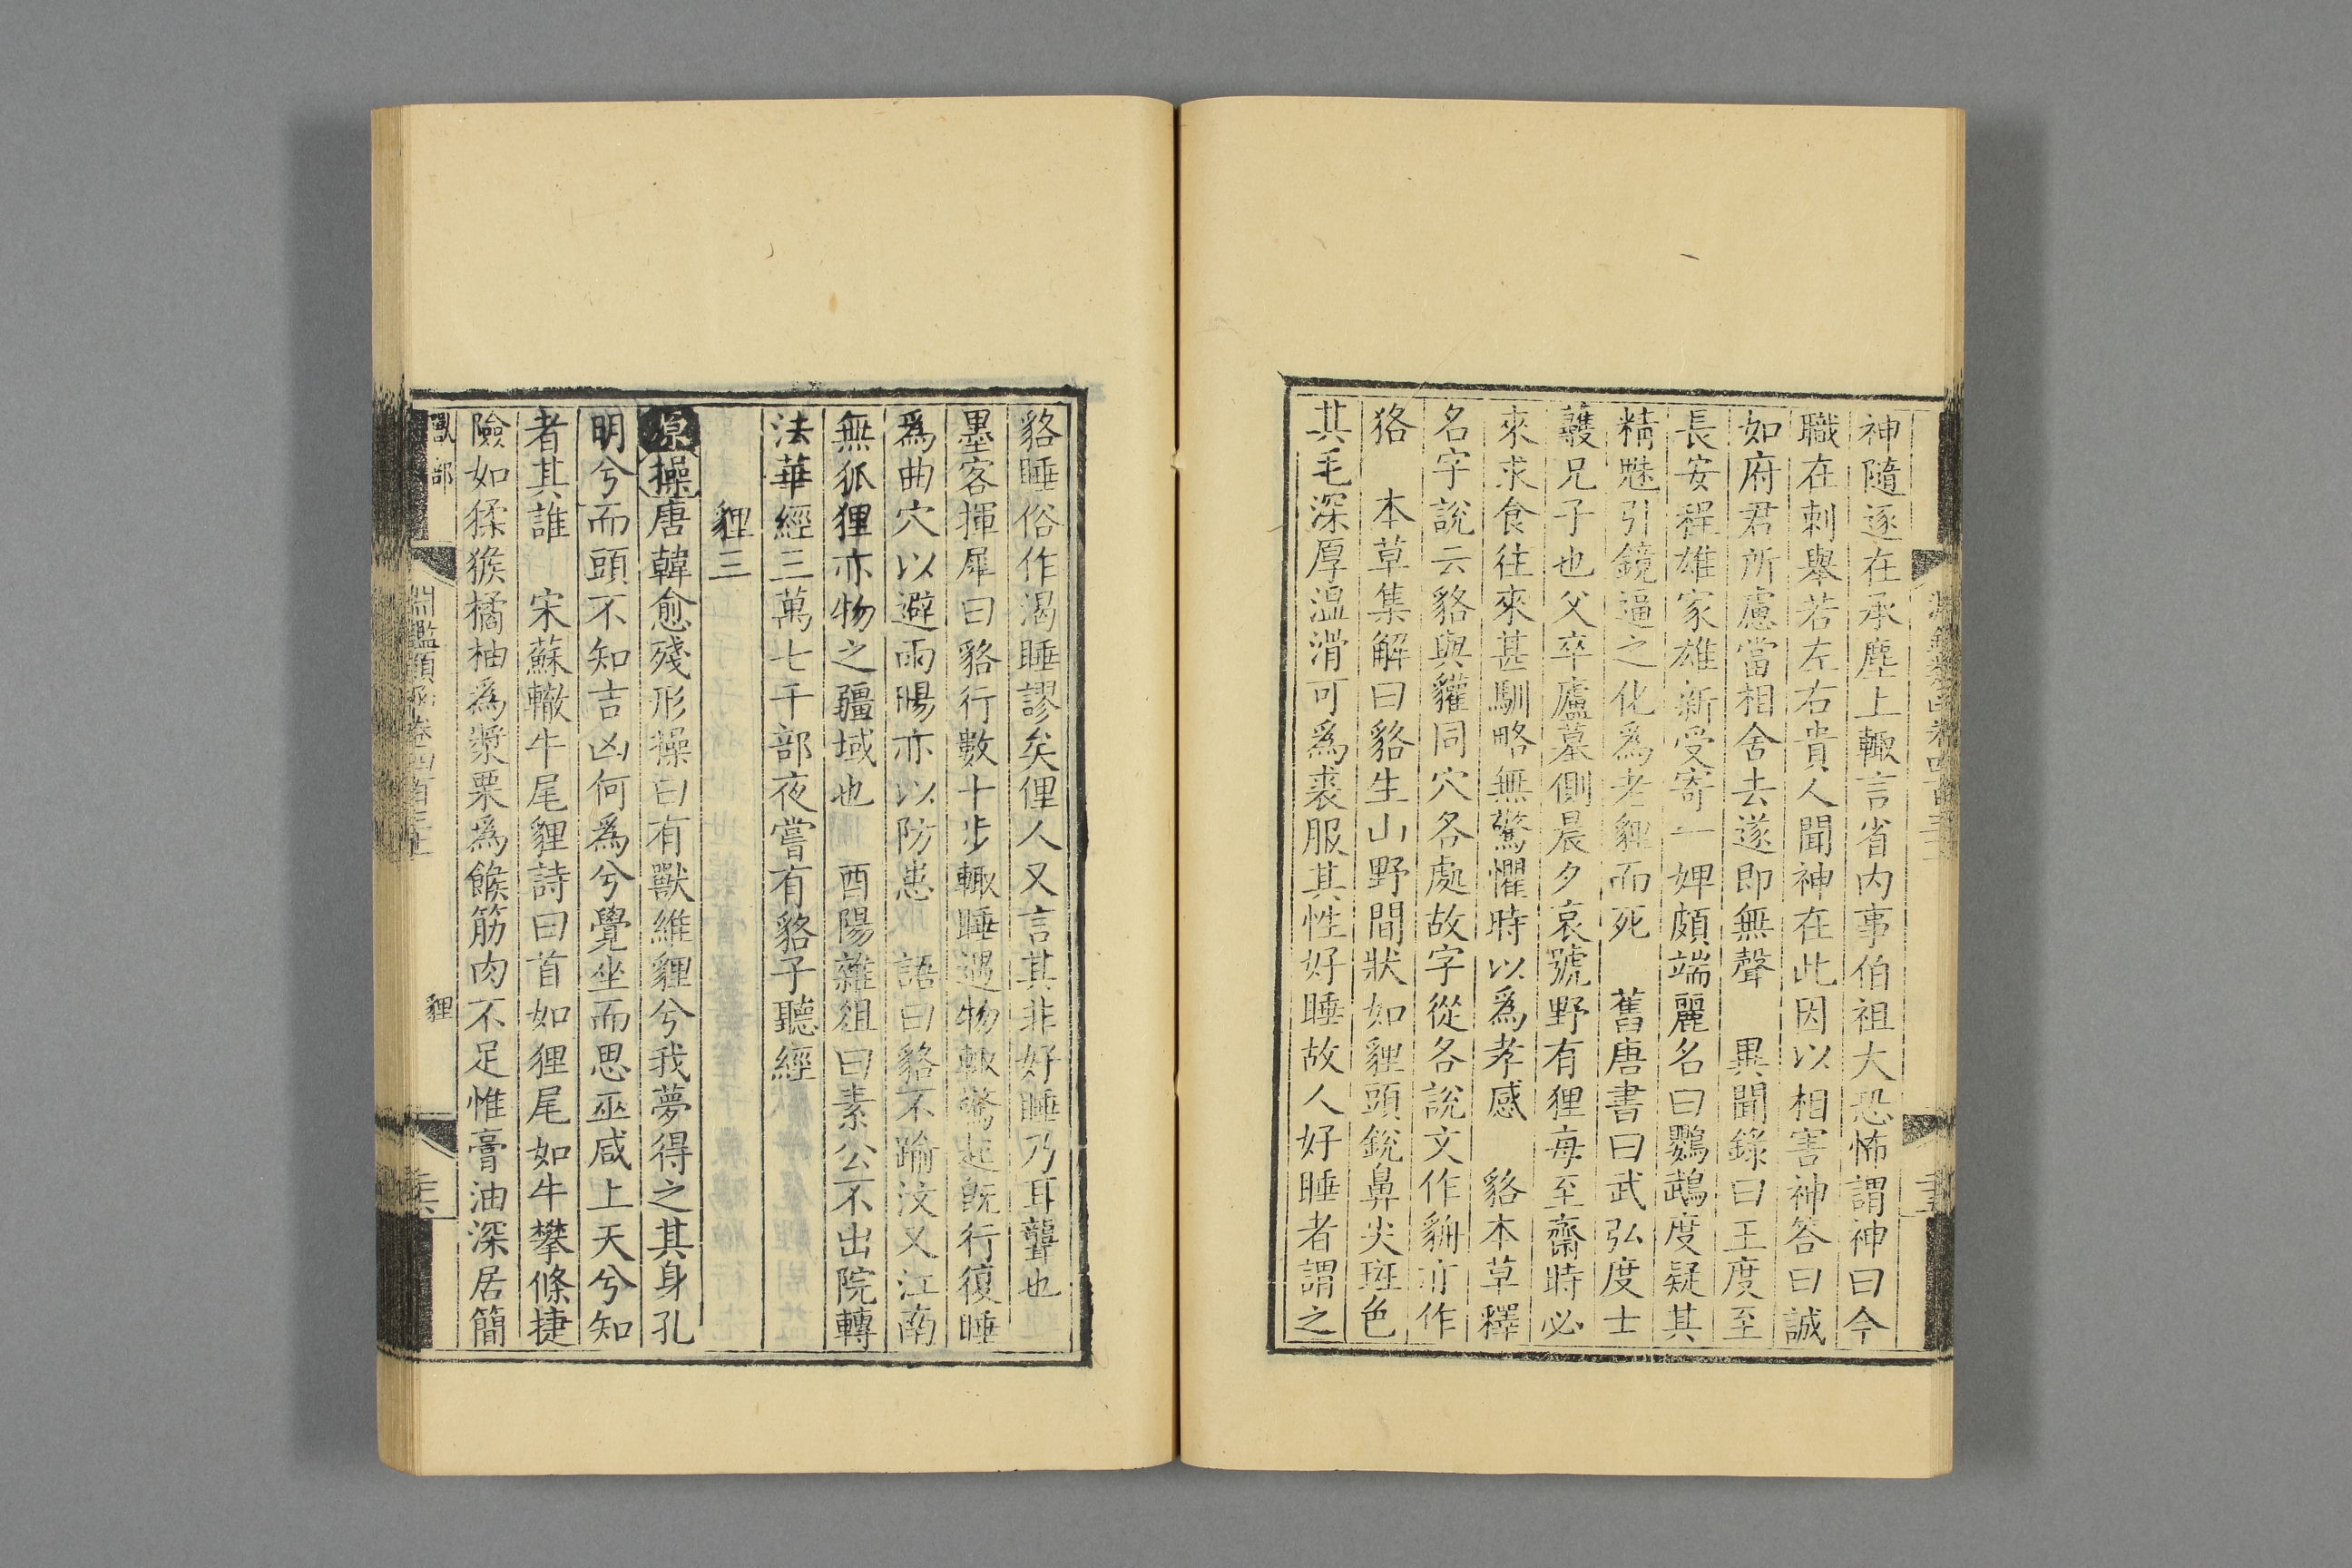 神隨逐在承塵上輙言省内事伯祖大恐怖謂神曰今
職在刺舉若左右貴人聞神在此因以相害神答曰誠
如府君所慮當相舍去遂即無聲　異聞錄曰王度至
長安程雄家雄新受寄一婢頗端麗名曰鸚鵡度疑其
精魅引鏡逼之化爲老貍而死　舊唐書曰武弘度士
彠兄子也父卒廬墓側晨夕哀號野有狸每至齋時必
來求食往來甚馴略無驚懼時以爲孝感　貉本草釋
名字說云貉與貛同穴各處故字從各說文作貈亦作
狢　本草集解曰貉生山野間狀如貍頭銳鼻尖斑色
其毛深厚溫滑可爲裘服其性好睡故人好睡者謂之
貉睡俗作渴睡謬矣俚人又言其非好睡乃耳聾也
墨客揮犀曰貉行數十步輙睡遇物輙驚起既行復睡
爲曲穴以避雨暘亦以防患　語曰貉不踰汶又江南
無狐狸亦物之疆域也　酉陽雜俎曰素公不出院轉
法華經三萬七千部夜嘗有貉子聽經
貍三
原操唐韓愈殘形操曰有獸維貍兮我夢得之其身孔
明兮而頭不知吉凶何爲兮覺坐而思巫咸上天兮知
者其誰　宋蘇轍牛尾貍詩曰首如狸尾如牛攀條捷
險如猱猴橘柚爲漿栗爲餱筋肉不足惟膏油深居簡
獸部
淵鑑類函卷四百三十
貍